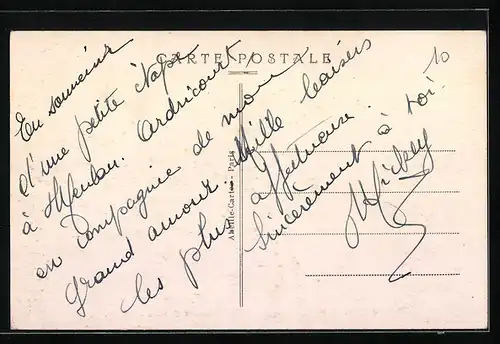 CARTE POSTALE
10
En souvenir
d'une petite étape
à Meulan. Ardricourt,
en compagnie de mon
grand amour. Mille baisers
les plus affectueux.
Sincèrement à toi.
Mickey
Abeille-Cartes - Paris